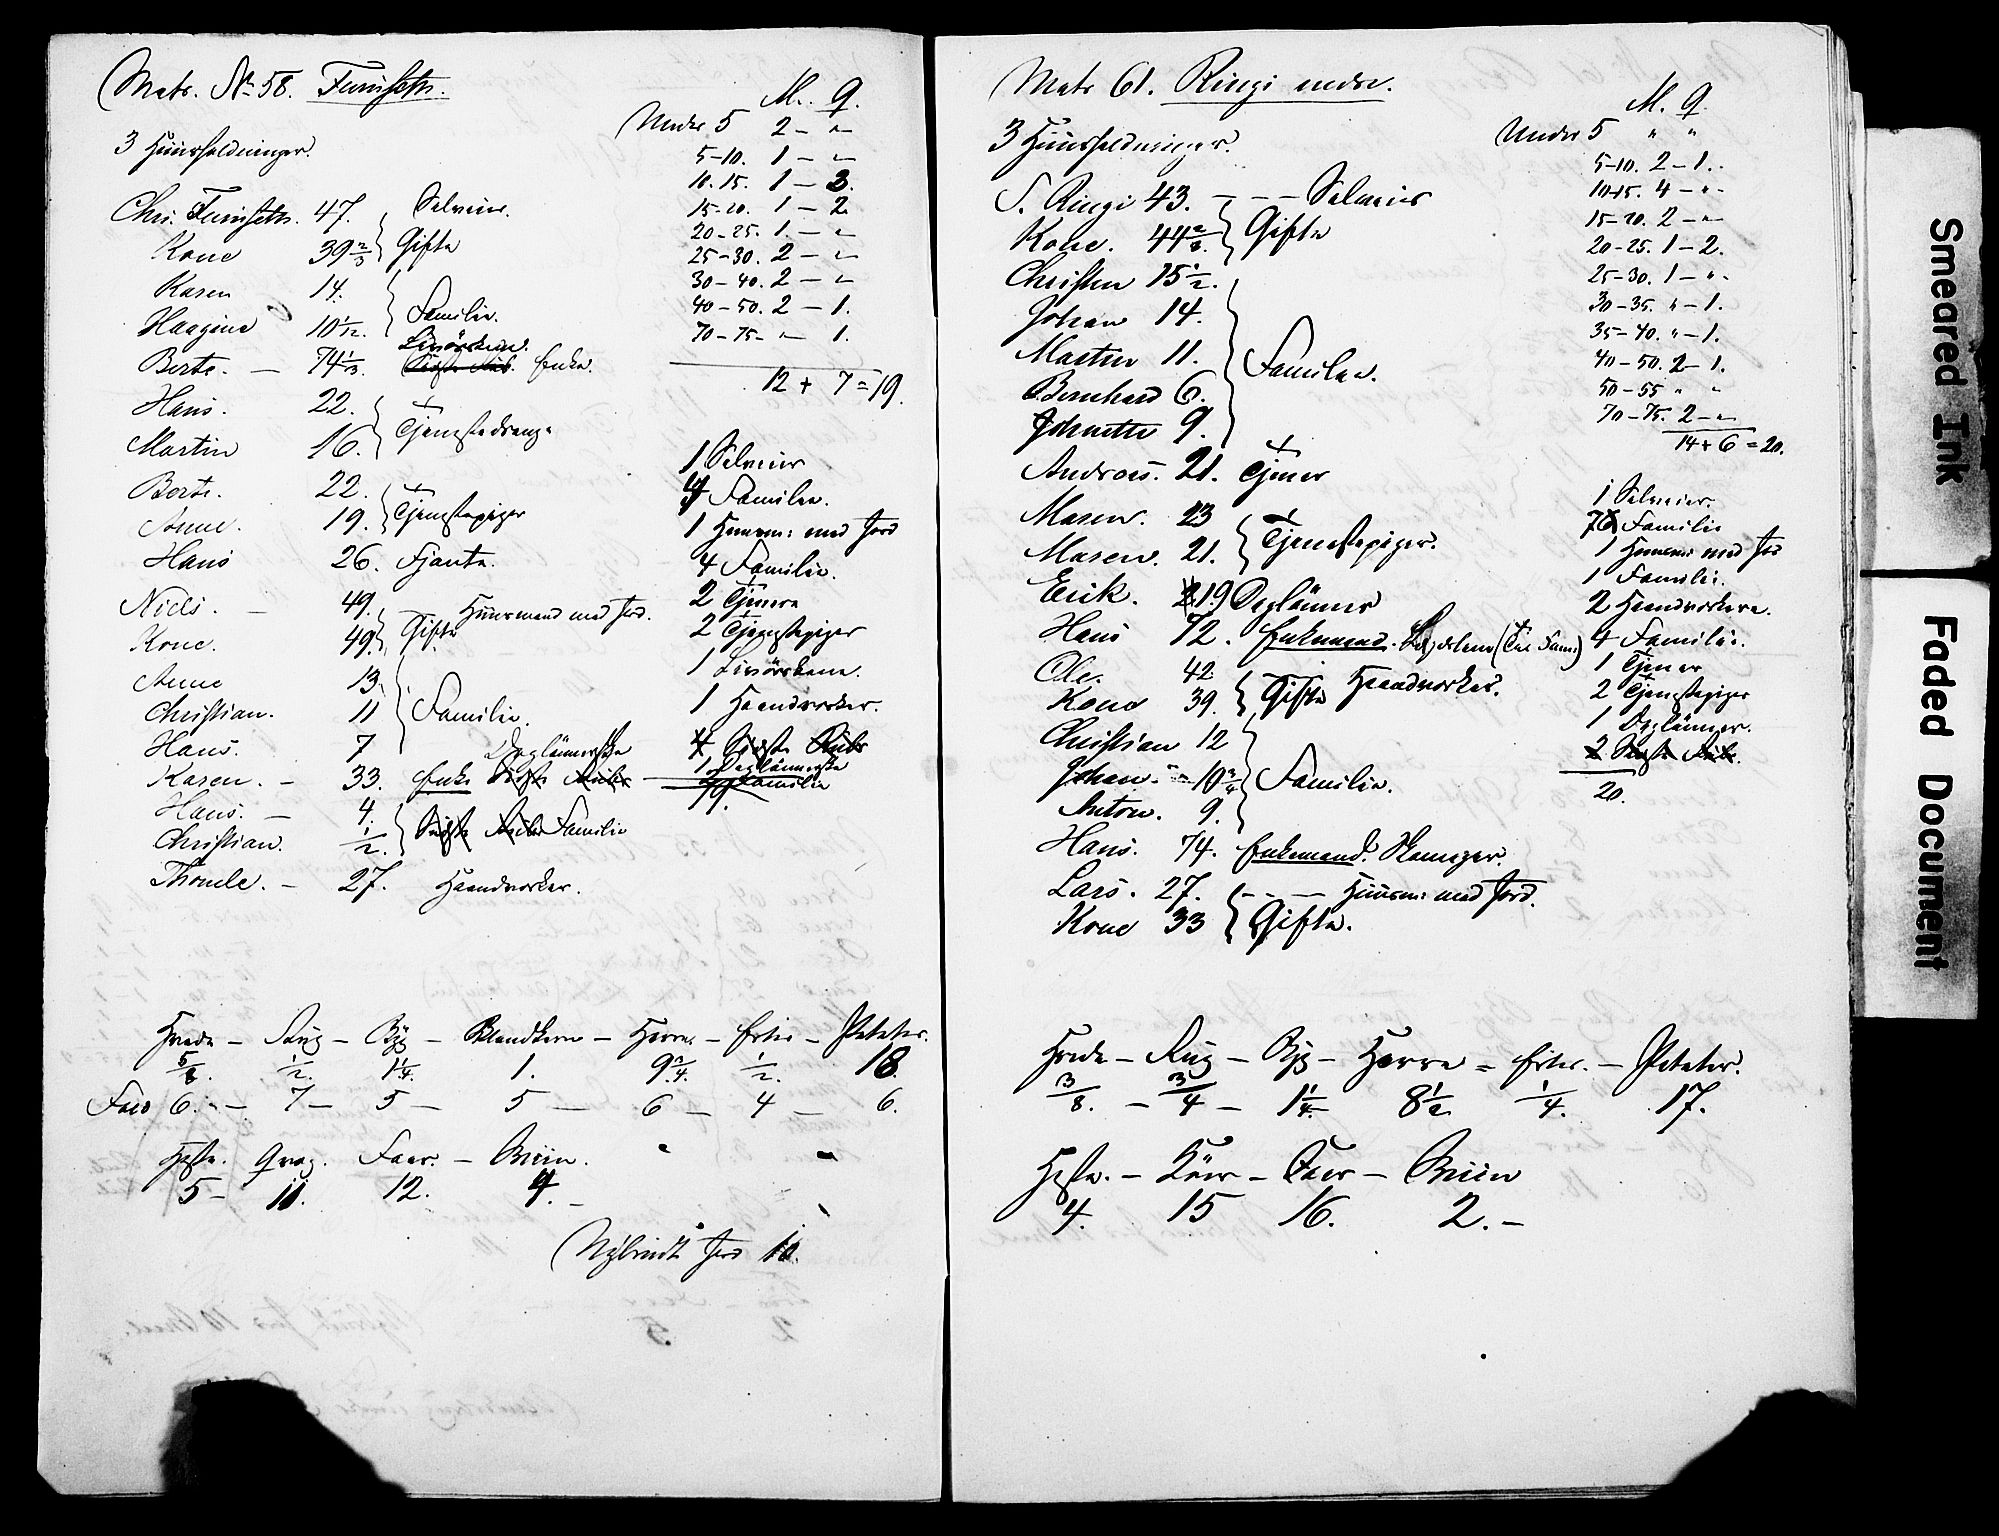 Matr. No 58. Furuseth.
3 Huusholdninger.
Chr. Furuseth. 47. Selveier.
Kone 39 2/3 Gifte
Karen 14.
Haagine 10 1/12. Familie.
Berte. — 74 1/3. Livörskene. Enke.
Hans. 22.
Martin 16. Tjenestedrenge
Berte. 22.
Anne. 19. Tjenestepiger
Hans 26. Fjante.
Niels. — 49. Huusmand med Jord.
Kone. 49. Gifte
Anne 13.
Christian. 11 Familie.
Hans. 7
Karen. — 33. Enke Daglönnerske
Hans. — 4.
Christian. 1/2. Familie
— 27. Haandverker.
M. Q.
Under 5 2 — "
5-10. 1 — "
10-15. 1 — 3.
15-20. 1 — 2
20-25. 1. — "
25-30. 2 — "
30-40. 2 — "
40-50. 2 — 1.
70-75 - " — 1.
12 + 7 = 19.
1 Selveier
4 Familie.
1 Huusm: med Jord
4 Familie.
2 Tjenere
2 Tjenestepiger
1 Livörskene.
1 Haandverker.
1 Daglönnerske
Familie
19.
Hvede — Rug — Byg — Blandkorn — Havre — Erter — Poteter.
5/8. 1/2. 1 1/4. 1. 9 3/4. 1/2. 18.
6. — 7 — 5 — 5 — 6 — 4 — 6.
Heste. Qvæg. Faar. — Sviin.
5 — 11. 12. 4. —
Nybrudt Jord 10.
Matr 61. Ringi nedre.
3 Huusholdninger.
S. Ringi 43. - - - Selveier
Kone. 44 Gifte
Christen 15 1/2.
Johan 14.
Martin 11.
Bernhard 6. Familie.
Johnette 9.
Andreas. 21. Tjener
Maren. 23
Maren. 21. Tjenestepiger.
Erik. 19 Daglönner
Hans 72. Enkemand.
Ole. 42 Haandverker.
Kone 39. Gifte
Christian 12
Johan. — 10 3/4 Familie.
Anton. 9.
Hans. 74. Enkemand.
Lars. 27. — - — Huusm: med Jord.
Kone 33 Gifte.
M. Q.
Under 5 " "
5-10. 2 — 1.
10-15. 4 — "
15-20. 2 — "
20-25. 1 — 2.
25-30. 1 — "
30-35. " — 1.
35-40. " — 1.
40-50. 2 — 1.
50-55 " "
70-75. 2 — "
14 + 6 = 20.
1 Selveier.
Familie
1 Huusm: med Jord
1 Familie.
2 Haandverkere.
4 Familie.
1 Tjener
2 Tjenestepiger
1 Daglönner.
20.
Hvede — Rug — Byg — Havre — Erter. — Poteter.
3/8. — 3/4 — 1 1/4 8 1/2 1/4. 17.
Heste. — Köer — Faar — Sviin
4. 15 16. 2. —
Smeared Ink
Faded Document